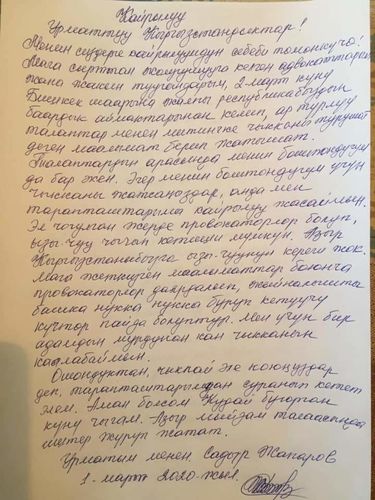 Кайрылуу
Урматтуу Кыргызстандыктар!
Менин сиздерге кайрылуумдун себеби төмөнкүчө!
Мага сырттан жолугушууга келген адвокаттарым
жана жакын туугандарым, 2-март күнү
Бишкек шаарына жалпы республикабыздын
баардык аймактарынан келип, ар түрдүү
талаптар менен митингге чыкканы турушат
деген маалымат берип жатышат.
Талаптардын арасында менин боштондугум
да бар экен. Эгер менин боштондугум үчүн
чыкканы жатсаңыздар, анда мен
тарапташтарыма кайрылуу жасаймын.
Эл чогулган жерде провокаторлор болуп,
ызы-чуу чыгып кетиши мүмкүн. Азыр
Кыргызстаныбызга ызы-чуунун кереги жок.
Мага жеткизген маалыматтар боюнча
провокаторлор даярдалып, окуяны
башка нукка буруп кетүүчү
күчтөр пайда болуптур. Мен үчүн бир
адамдын мурдунан кан чыкканын
каалабаймын.
Ошондуктан, чыкпай эле коюңуздар
деп, тарапташтарымдан суранып кетет
элем. Аман болсом Кудай буюрган
күнү чыгам. Азыр мыйзам талаасында
иштер жүрүп жатат.
Урматым менен Садыр Жапаров
1-март 2020-жыл.